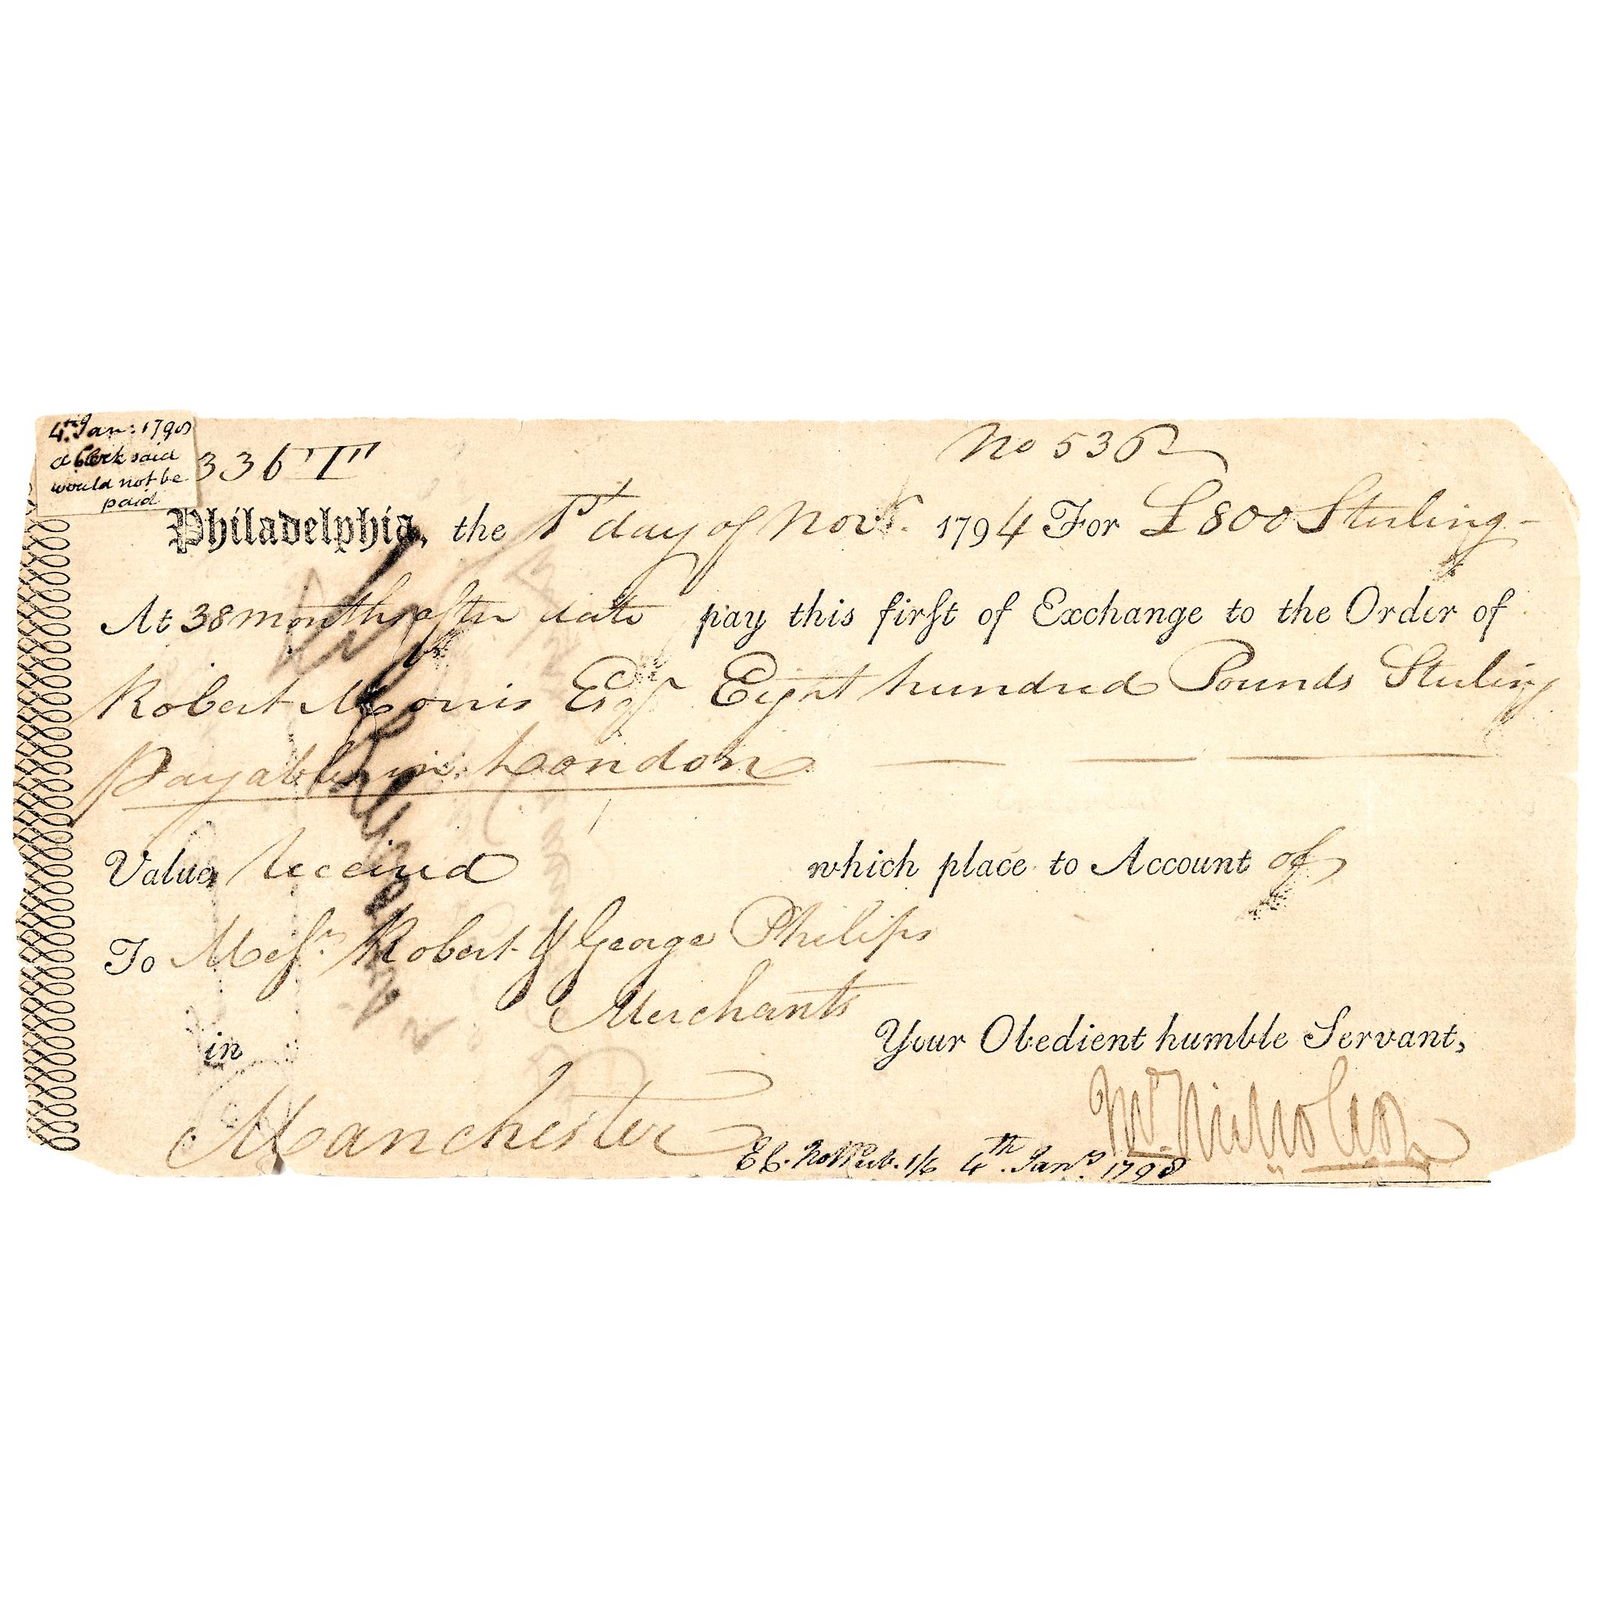 4th Jan: 1798
a Clerk said
would not be
paid
336
No 536
Philadelphia, the 1st day of Novr. 1794 For £800 Sterling -
At 38 months after date pay this first of Exchange to the Order of
Robert Morris Esqr Eight hundred Pounds Sterling
Payable in London
Value received which place to Account of
To Messrs Robert & George Philips
Merchants
in
Your Obedient humble Servant,
Manchester
Jno. Nicholson
4th Jany 1798